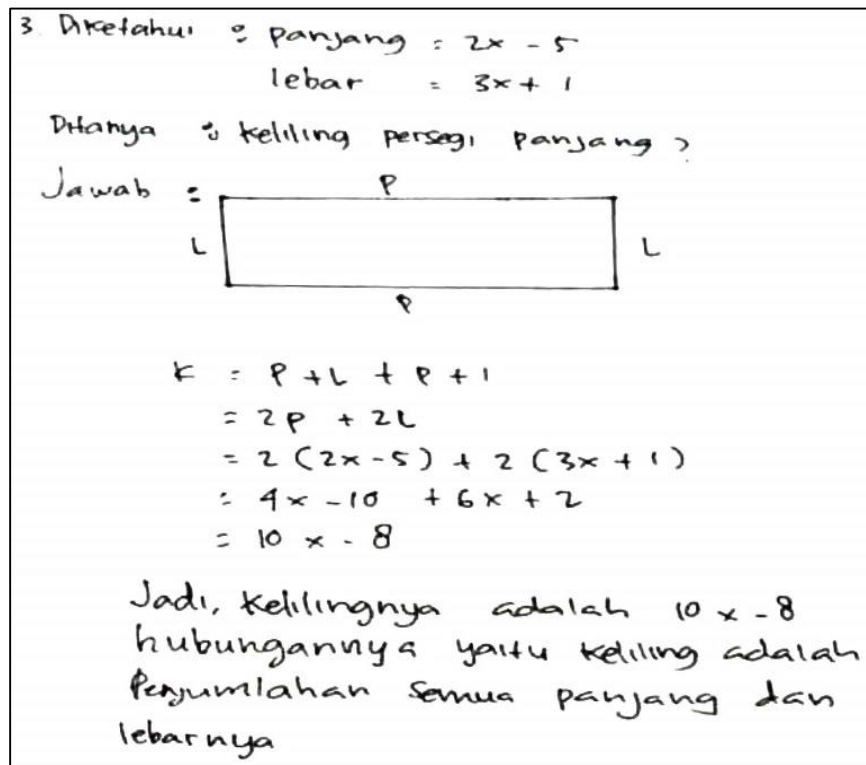 3. Diketahui : panjang = 2x - 5
lebar = 3x + 1
Ditanya : keliling persegi panjang ?
Jawab :
P
L
L
P
K = P + L + P + l
= 2P + 2L
= 2 (2x - 5) + 2 (3x + 1)
= 4x - 10 + 6x + 2
= 10x - 8
Jadi, kelilingnya adalah 10x - 8
hubungannya yaitu keliling adalah
Penjumlahan semua panjang dan
lebarnya